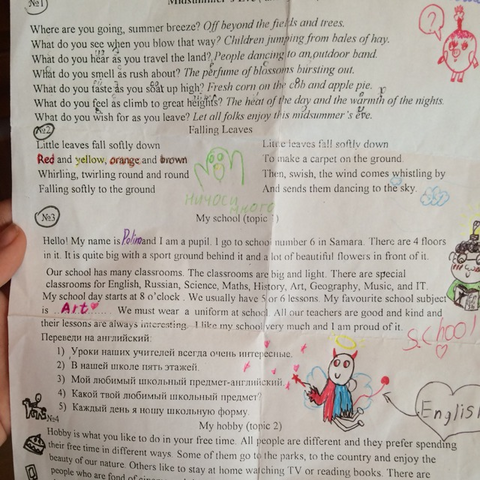 №1
Midsummer's Eve
Where are you going, summer breeze? Off beyond the fields and trees.
What do you see when you blow that way? Children jumping from bales of hay.
What do you hear as you travel the land? People dancing to an outdoor band.
What do you smell as rush about? The perfume of blossoms bursting out.
What do you taste as you soat up high? Fresh corn on the cob and apple pie.
What do you feel as climb to great heights? The heat of the day and the warmth of the nights.
What do you wish for as you leave? Let all folks enjoy this midsummer's eve.
?
№2
Falling Leaves
Little leaves fall softly down
Red and yellow, orange and brown
Whirling, twirling round and round
Falling softly to the ground
Little leaves fall softly down
To make a carpet on the ground
Then, swish, the wind comes whistling by
And sends them dancing to the sky.
№3
My school (topic 1)
Hello! My name is Polina and I am a pupil. I go to school number 6 in Samara. There are 4 floors
in it. It is quite big with a sport ground behind it and a lot of beautiful flowers in front of it.
Our school has many classrooms. The classrooms are big and light. There are special
classrooms for English, Russian, Science, Maths, History, Art, Geography, Music, and IT.
My school day starts at 8 o'clock. We usually have 5 or 6 lessons. My favourite school subject
is Art. We must wear a uniform at school. All our teachers are good and kind and
their lessons are always interesting. I like my school very much and I am proud of it.
School
Переведи на английский:
1) Уроки наших учителей всегда очень интересные.
2) В нашей школе пять этажей.
3) Мой любимый школьный предмет-английский.
4) Какой твой любимый школьный предмет?
5) Каждый день я ношу школьную форму.
English
№4
My hobby (topic 2)
Hobby is what you like to do in your free time. All people are different and they prefer spending
their free time in different ways. Some of them go to the parks, to the country and enjoy the
beauty of our nature. Others like to stay at home watching TV or reading books. There are
people who are fond of